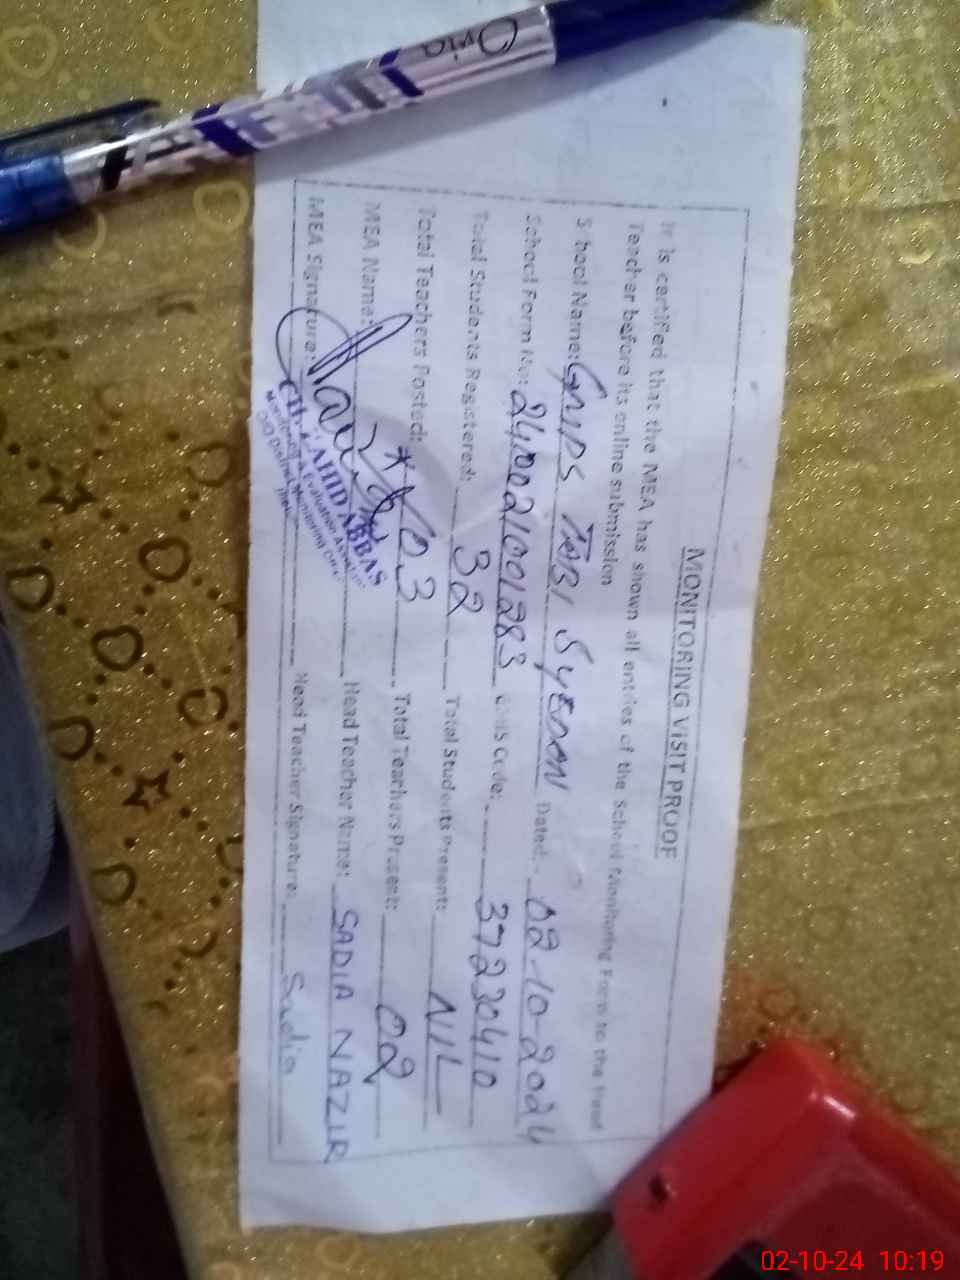 MONITORING VISIT PROOF
It is certifed that the MEA has shown all entries of the School Monitoring Form to the Head
Teacher before its online submission
School Name: GMPS TABI SYEDAN Dated: 02-10-2024
School Form No: 2410021001283 EMIS Code: 37230410
Total Students Registered: 32 Total Students Present: NIL
Total Teachers Posted: 03 Total Teachers Present: 02
MEA Name: Head Teacher Name: SADIA NAZIR
MEA Signature: Head Teacher Signature: Sadia
AHID ABBAS
Monitoring & Evaluation Assistant
O/O District Monitoring
02-10-24 10:19